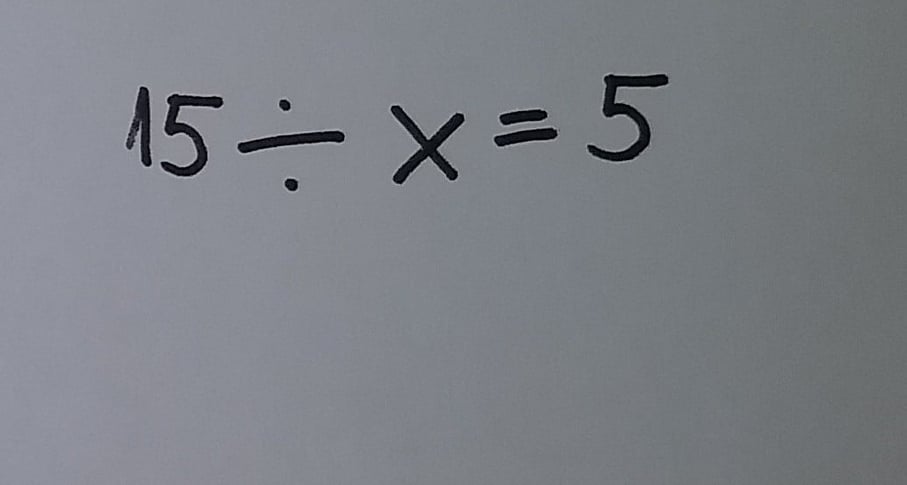 15 ÷ x = 5